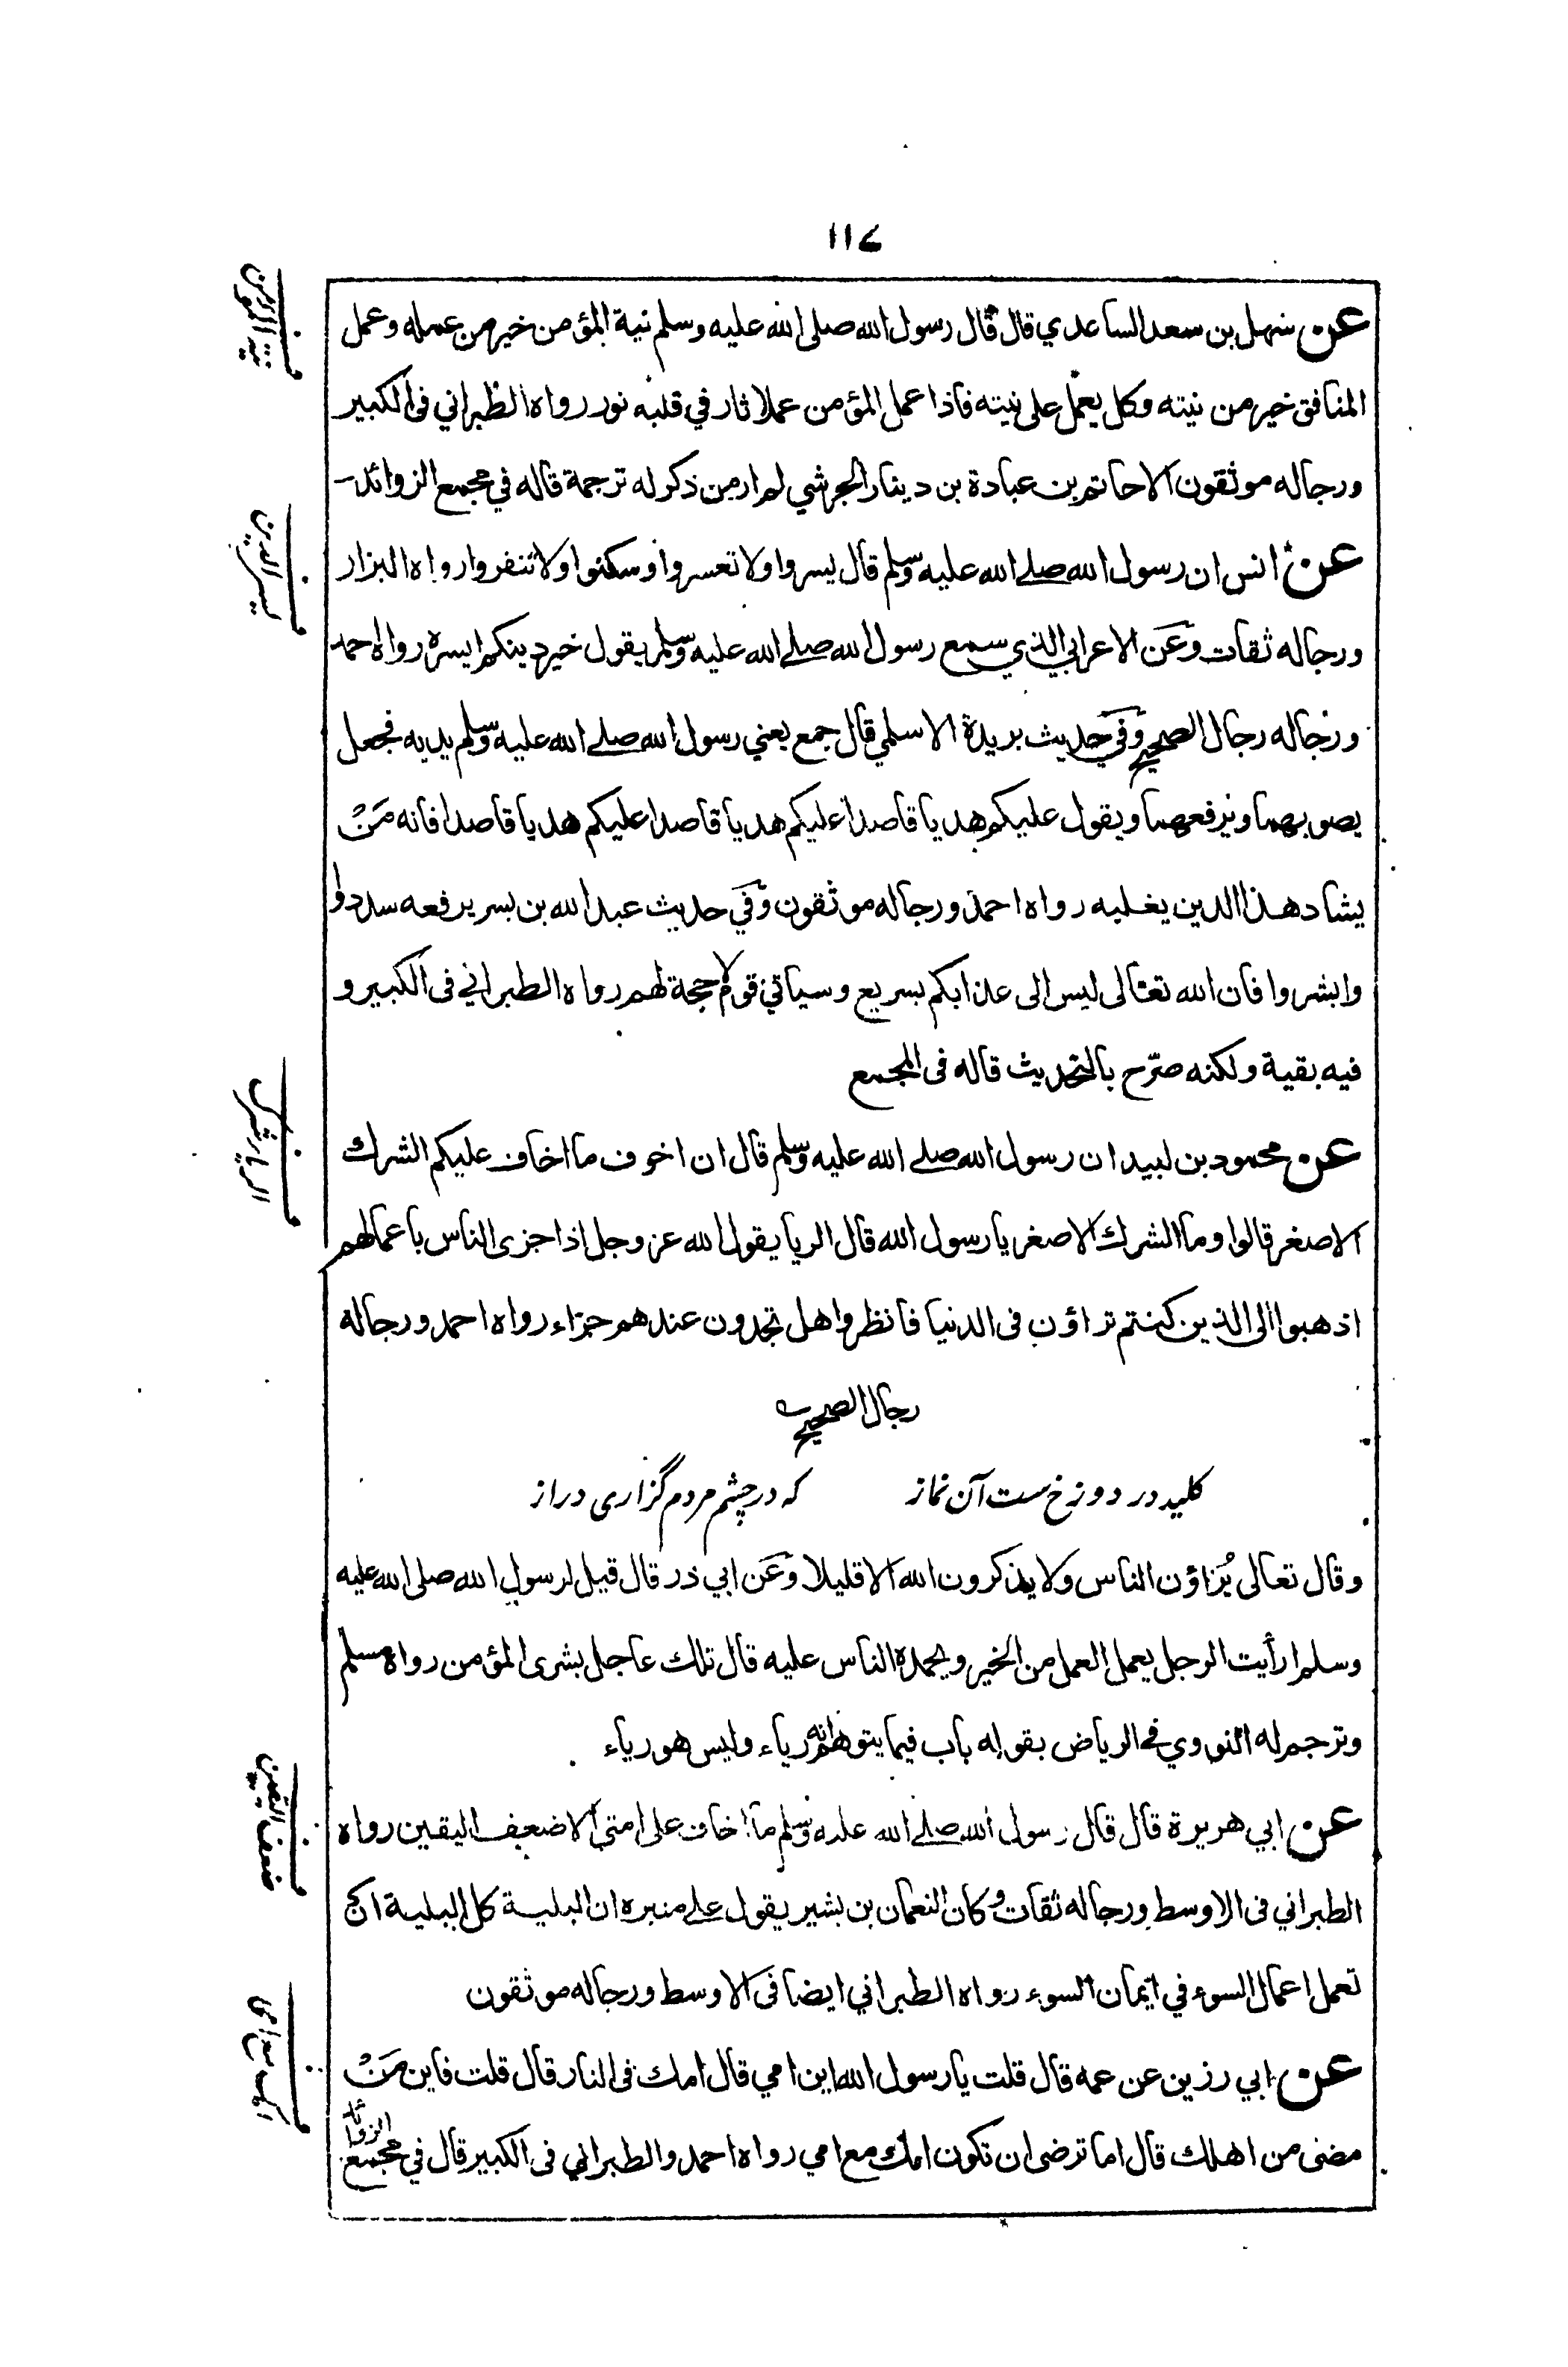 ١١٧
عن سهل بن سعد الساعدي قال قال رسول الله صلى الله عليه وسلم نية المؤمن خير من عمله وعمل
المنافق خير من نيته وكل يعمل على نيته فاذا عمل المؤمن عملا ثار في قلبه نور رواه الطبراني في الكبير
ورجاله موثقون الا حاتم بن عبادة بن دينار الجرشي لم ار من ذكر له ترجمة قاله في مجمع الزوائد
عن انس ان رسول الله صلے الله عليه وسلم قال يسروا ولا تعسروا وسكنوا ولا تنفروا رواه البزار
ورجاله ثقات وعن الاعرابي الذي سمع رسول الله صلے الله عليه وسلم يقول خير دينكم ايسره رواه احمد
ورجاله رجال الصحيح وفي حديث بريدة الاسلمي قال جمع يعني رسول الله صلے الله عليه وسلم يديه فجعل
يصوبهما ويرفعهما ويقول عليكم هديا قاصدا عليكم هديا قاصدا عليكم هديا قاصدا فانه مَنْ
يشاد هذا الدين يغلبه رواه احمد ورجاله موثقون وفي حديث عبد الله بن بسر يرفعه سددوا
وابشروا فان الله تعالى ليس الى عذابكم بسريع وسياتي قوم لا حجة لهم رواه الطبراني في الكبير و
فيه بقية ولكنه صرّح بالتحديث قاله في المجمع
عن محمود بن لبيد ان رسول الله صلے الله عليه وسلم قال ان اخوف ما اخاف عليكم الشرك
الاصغر قالوا وما الشرك الاصغر يا رسول الله قال الريا يقول الله عز وجل اذا جزى الناس باعمالهم
اذهبوا الى الذين كنتم تراؤن في الدنيا فانظروا هل تجدون عندهم جزاء رواه احمد ورجاله
رجال الصحيح
كليد در دوزخ ست آن نماز که در چشم مردم گزاری دراز
وقال تعالى يُراؤن الناس ولا يذكرون الله الا قليلا وعن ابي ذر قال قيل لرسول الله صلى الله عليه
وسلم ارأيت الرجل يعمل العمل من الخير ويحمده الناس عليه قال تلك عاجل بشرى المؤمن رواه مسلم
وترجم له النووي في الرياض بقوله باب فيما يتوهم انه رياء وليس هو رياء
عن ابي هريرة قال قال رسول الله صلے الله عليه وسلم ما اخاف على امتي الا ضعف اليقين رواه
الطبراني في الاوسط ورجاله ثقات وكان النعمان بن بشير يقول علے منبره ان البلية كل البلية ان
تعمل اعمال السوء في ايمان السوء رواه الطبراني ايضا في الاوسط ورجاله موثقون
عن ابي رزين عن عمه قال قلت يا رسول الله اين امي قال امك في النار قال قلت فاين مَنْ
مضى من اهلك قال اما ترضى ان تكون امك مع امي رواه احمد والطبراني في الكبير قال في مجمع الزوائد
ف نية المؤمن
ف يسر الدين
ف الريا شرك
ف ضعف اليقين
ف امك مع امى